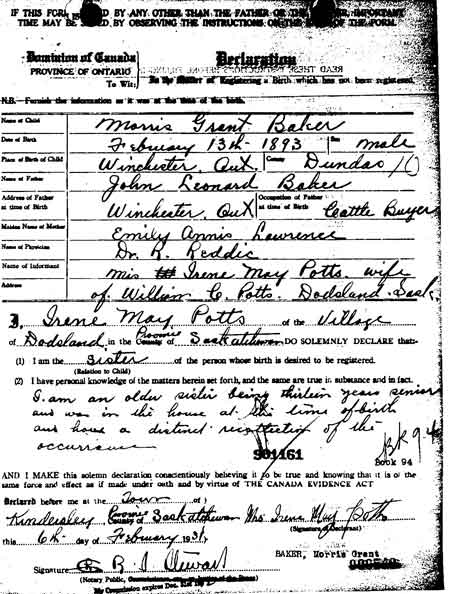 IF THIS FORM IS USED BY ANY OTHER THAN THE FATHER OR THE IMPORTANT
TIME MAY BE SAVED BY OBSERVING THE INSTRUCTIONS ON THE OF THE FORM.
Dominion of Canada
PROVINCE OF ONTARIO
To Wit:
Declaration
In the Matter of Registering a Birth which has not been registered.
N.B. Furnish the information as it was at the time of the birth.
Name of Child Morris Grant Baker
Date of Birth February 13th 1893 Sex male
Place of Birth of Child Winchester, Ont County Dundas
Name of Father John Leonard Baker
Address of Father at time of Birth Winchester, Ont Occupation of Father at time of Birth Cattle Buyer
Maiden Name of Mother Emily Annis Lawrence
Name of Physician Dr. R. Reddic
Name of Informant Mis Irene May Potts. wife
Address of William C. Potts. Dodsland. Sask.
I, Irene May Potts of the Village
of Dodsland, in the Province County of Saskatchewan DO SOLEMNLY DECLARE that:
(1) I am the Sister of the person whose birth is desired to be registered.
(Relation to Child)
(2) I have personal knowledge of the matters herein set forth, and the same are true in substance and in fact.
I am an older sister being thirteen years senior
and was in the house at the time of birth
and have a distinct recollection of the
occurrance
S01161
BK 94
Book 94
AND I MAKE this solemn declaration conscientiously believing it to be true and knowing that it is of the
same force and effect as if made under oath and by virtue of THE CANADA EVIDENCE ACT
Declared before me at the Town of)
Kindersley Province County of Saskatchewan Mrs Irene May Potts
(Signature of Declarant)
this 6th day of February 1931,
BAKER, Morris Grant
Signature R. J. Stewart
(Notary Public,
My Commission expires Dec. 31st